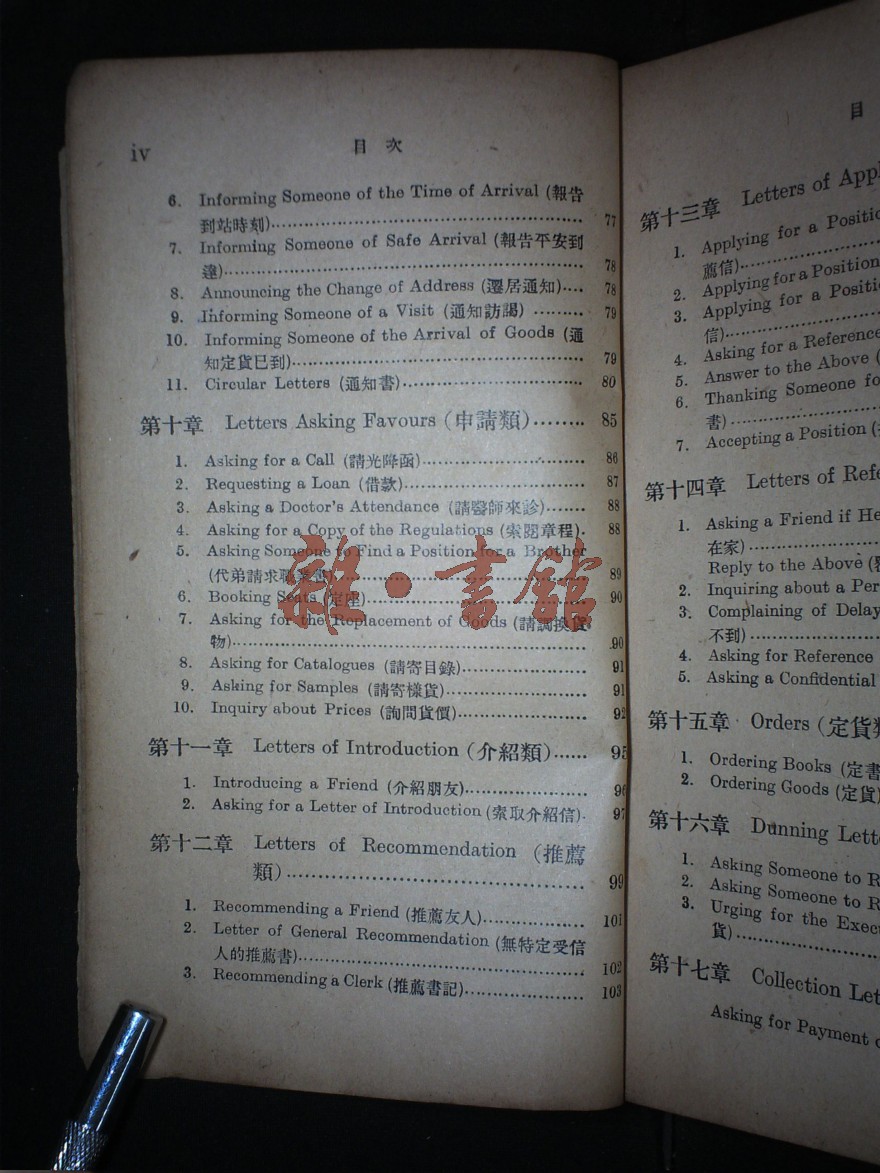 iv
目次
6. Informing Someone of the Time of Arrival (報告
到站時刻)........ 77
7. Informing Someone of Safe Arrival (報告平安到
達)........ 78
8. Announcing the Change of Address (遷居通知).... 78
9. Informing Someone of a Visit (通知訪謁) ........ 79
10. Informing Someone of the Arrival of Goods (通
知定貨已到)........ 79
11. Circular Letters (通知書)........ 80
第十章 Letters Asking Favours (申請類)........ 85
1. Asking for a Call (請光降函)........ 86
2. Requesting a Loan (借款)........ 87
3. Asking a Doctor's Attendance (請醫師來診)....... 88
4. Asking for a Copy of the Regulations (索閱章程). 88
5. Asking Someone to Find a Position for a Brother
(代弟請求職業書)........ 89
6. Booking Seats (定座)........ 90
7. Asking for the Replacement of Goods (請調換貨
物)........ 90
8. Asking for Catalogues (請寄目錄)........ 91
9. Asking for Samples (請寄樣貨)........ 91
10. Inquiry about Prices (詢問貨價)........ 92
第十一章 Letters of Introduction (介紹類)...... 95
1. Introducing a Friend (介紹朋友)........ 96
2. Asking for a Letter of Introduction (索取介紹信). 97
第十二章 Letters of Recommendation (推薦
類)........ 99
1. Recommending a Friend (推薦友人)........ 101
2. Letter of General Recommendation (無特定受信
人的推薦書)........ 102
3. Recommending a Clerk (推薦書記)........ 103
雜·書館
目
第十三章 Letters of Appl
1. Applying for a Positio
薦信)........
2. Applying for a Position
3. Applying for a Positi
信)........
4. Asking for a Reference
5. Answer to the Above (
6. Thanking Someone fo
書)........
7. Accepting a Position (
第十四章 Letters of Refe
1. Asking a Friend if He
在家)........
Reply to the Above (
2. Inquiring about a Per
3. Complaining of Delay
不到)........
4. Asking for Reference
5. Asking a Confidential
第十五章 Orders (定貨類
1. Ordering Books (定書
2. Ordering Goods (定貨)
第十六章 Dunning Lette
1. Asking Someone to R
2. Asking Someone to R
3. Urging for the Execu
貨)........
第十七章 Collection Let
Asking for Payment o